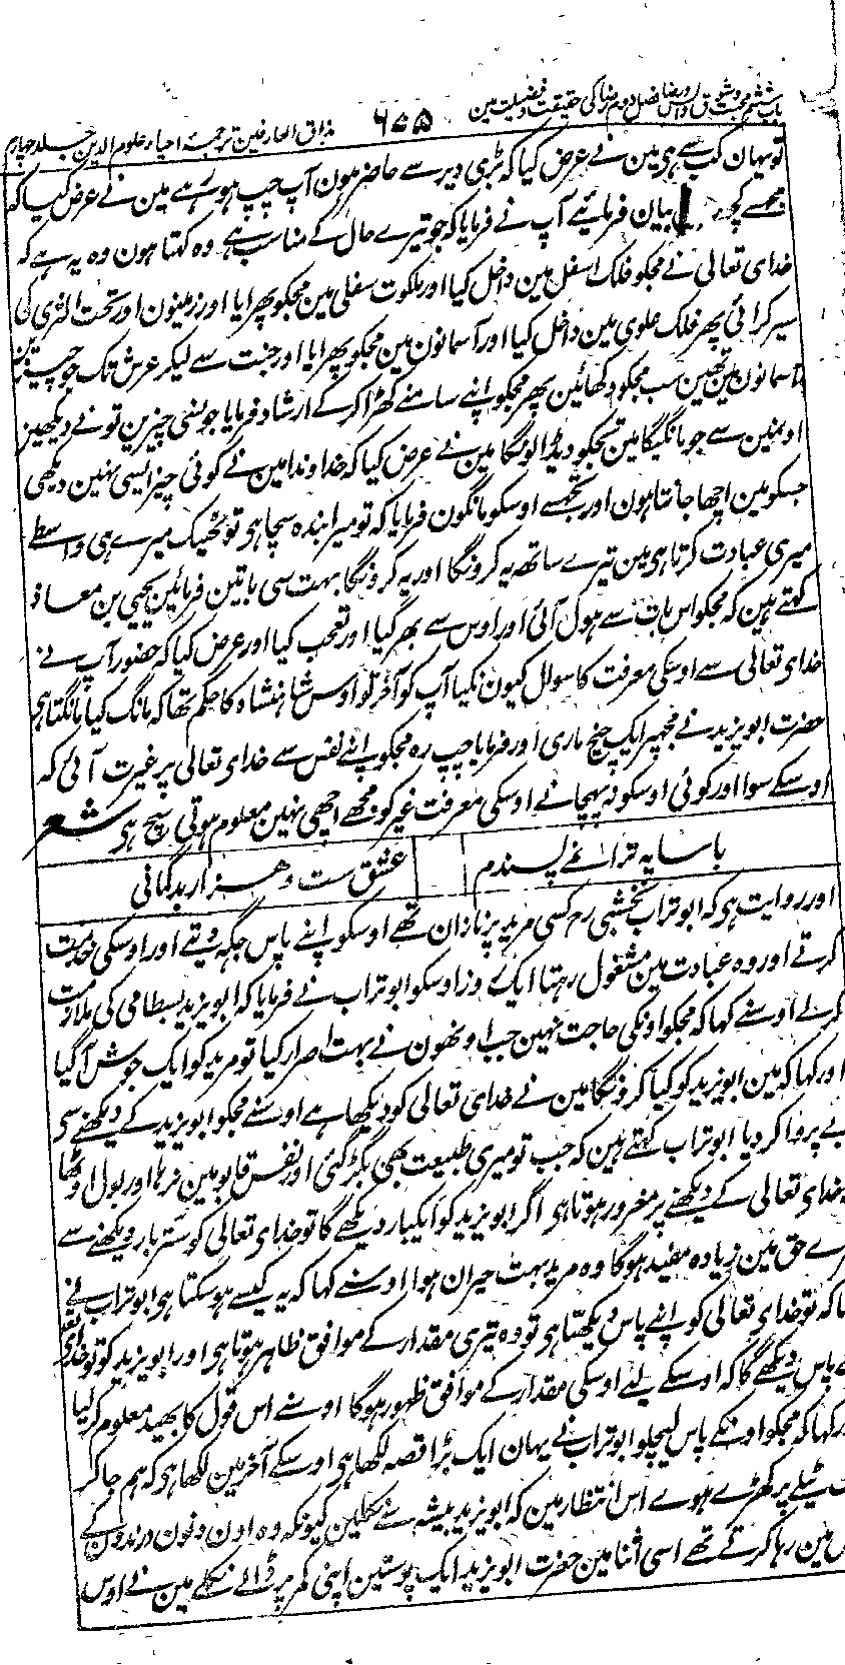 باب ششم محبت و شوق و انس و رضا فصل دوم رضا کی حقیقت و فضیلت مین
۶۵۵
مذاق العارفین ترجمۂ احیاء علوم الدین جلد چہارم
تو یہان کب سے ہی مین نے عرض کیا کہ بڑی دیر سے حاضر ہون آپ چپ ہو رہے مین نے عرض کیا کہ
مجھسے کچھ بیان فرمائیے آپ نے فرمایا کہ جو تیرے حال کے مناسب ہے وہ کہتا ہون وہ یہ ہے کہ
خدای تعالی نے مجکو فلک اسفل مین داخل کیا اور ملکوت سفلی مین مجکو پھرایا اور زمینون اور تحت الثری کی
سیر کرائی پھر فلک علوی مین داخل کیا اور آسمانون مین مجکو پھرایا اور جنت سے لیکر عرش تک جو چیزین
آسمانون مین تھین سب مجکو دکھائین پھر مجکو اپنے سامنے کھڑا کر کے ارشاد فرمایا جونسی چیزین تو نے دیکھین
اونمین سے جو مانگیگا مین تجکو دیڈالونگا مین نے عرض کیا کہ خداوندا مین نے کوئی چیز ایسی نہین دیکھی
جسکو مین اچھا جانتا ہون اور تجھسے اوسکو مانگون فرمایا کہ تو میرا بندہ سچا ہی تو ٹھیک میرے ہی واسطے
میری عبادت کرتا ہی مین تیرے ساتھ یہ کرونگا اور یہ کرونگا بہت سی باتین فرمائین یحیی بن معاذ
کہتے ہین کہ مجکو اس بات سے ہول آئی اور اوس سے بھر گیا اور تعجب کیا اور عرض کیا کہ حضور آپ نے
خدای تعالی سے اوسکی معرفت کا سوال کیون نکیا آپ کو آخر تو اوس شاہنشاہ کا حکم تھا کہ مانگ کیا مانگتا ہی
حضرت ابو یزید نے مجھپر ایک چیخ ماری اور فرمایا چپ رہ مجکو اپنے نفس سے خدای تعالی پر غیرت آئی کہ
اوسکے سوا اور کوئی اوسکو نہ پہچانے اوسکی معرفت غیر کو مجھے اچھی نہین معلوم ہوتی سچ ہی شعر
با سایہ ترا نمے پسندم عشق ست و ہزار بدگمانی
اور روایت ہی کہ ابو تراب نخشبی رح کسی مرید پر نازان تھے اوسکو اپنے پاس جگہ دیتے اور اوسکی خدمت
کرتے اور وہ عبادت مین مشغول رہتا ایک روز اوسکو ابو تراب نے فرمایا کہ ابو یزید بسطامی کی ملازمت
کر لے اوسنے کہا کہ مجکو اونکی حاجت نہین جب اونھون نے بہت اصرار کیا تو مرید کو ایک جوش آگیا
اور کہا کہ مین ابو یزید کو کیا کرونگا مین نے خدای تعالی کو دیکھا ہے اوسنے مجکو ابو یزید کے دیکھنے سے
بے پروا کر دیا ابو تراب کہتے ہین کہ جب تو میری طبیعت بھی بگڑ گئی اور نفس قابو مین نرہا اور بول اوٹھا
خدای تعالی کے دیکھنے پر مغرور ہوتا ہی اگر ابو یزید کو ایکبار دیکھے گا تو خدای تعالی کو ستر بار دیکھنے سے
حق مین زیادہ مفید ہوگا وہ مرید بہت حیران ہوا اوسنے کہا کہ یہ کیسے ہو سکتا ہی ابو تراب نے
کہ تو خدای تعالی کو اپنے پاس دیکھتا ہی تو وہ تیری مقدار کے موافق ظاہر ہوتا ہی اور ابو یزید کو تو خدای
پاس دیکھے گا کہ اوسکے لئے اوسکی مقدار کے موافق ظہور ہوگا اوسنے اس قول کا بھید معلوم کر لیا
کہا کہ مجکو اونکے پاس لیچلو ابو تراب نے یہان ایک بڑا قصہ لکھا ہی اوسکے آخر مین لکھا ہی کہ ہم جا کر
ٹیلے پر کھڑے ہوے اس انتظار مین کہ ابو یزید بیشہ سے نکلین کیونکہ وہ اون دنون درندون کے
مین رہا کرتے تھے اسی اثنا مین حضرت ابو یزید ایک پوستین اپنی کمر پر ڈالے نکلے مین نے اوس